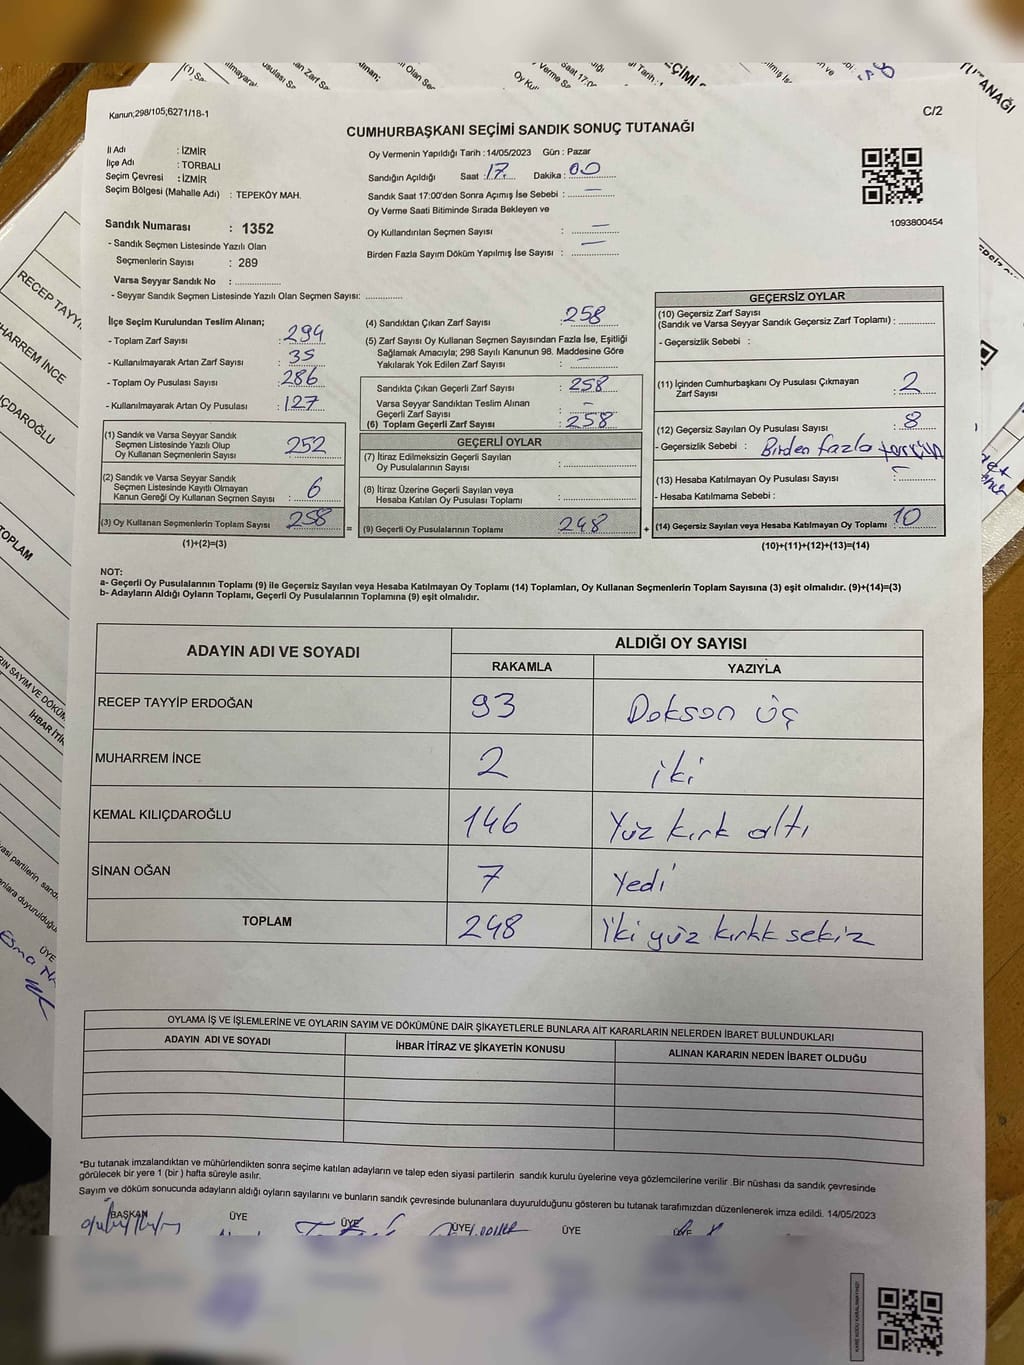 Kanun;298/105;6271/18-1
C/2
CUMHURBAŞKANI SEÇİMİ SANDIK SONUÇ TUTANAĞI
İl Adı : İZMİR
İlçe Adı : TORBALI
Seçim Çevresi : İZMİR
Seçim Bölgesi (Mahalle Adı) : TEPEKÖY MAH.
Sandık Numarası : 1352
- Sandık Seçmen Listesinde Yazılı Olan
Seçmenlerin Sayısı : 289
Varsa Seyyar Sandık No : ................
- Seyyar Sandık Seçmen Listesinde Yazılı Olan Seçmen Sayısı: .............
Oy Vermenin Yapıldığı Tarih : 14/05/2023 Gün : Pazar
Sandığın Açıldığı Saat : 17 Dakika : 00
Sandık Saat 17:00'den Sonra Açımış İse Sebebi : —
Oy Verme Saati Bitiminde Sırada Bekleyen ve
Oy Kullandırılan Seçmen Sayısı : —
Birden Fazla Sayım Döküm Yapılmış İse Sayısı : —
1093800454
İlçe Seçim Kurulundan Teslim Alınan;
- Toplam Zarf Sayısı : 294
- Kullanılmayarak Artan Zarf Sayısı : 35
- Toplam Oy Pusulası Sayısı : 286
- Kullanılmayarak Artan Oy Pusulası : 127
(1) Sandık ve Varsa Seyyar Sandık
Seçmen Listesinde Yazılı Olup
Oy Kullanan Seçmenlerin Sayısı : 252
(2) Sandık ve Varsa Seyyar Sandık
Seçmen Listesinde Kayıtlı Olmayan
Kanun Gereği Oy Kullanan Seçmen Sayısı : 6
(3) Oy Kullanan Seçmenlerin Toplam Sayısı 258
(1)+(2)=(3)
=
(4) Sandıktan Çıkan Zarf Sayısı : 258
(5) Zarf Sayısı Oy Kullanan Seçmen Sayısından Fazla İse, Eşitliği
Sağlamak Amacıyla; 298 Sayılı Kanunun 98. Maddesine Göre
Yakılarak Yok Edilen Zarf Sayısı : —
Sandıkta Çıkan Geçerli Zarf Sayısı : 258
Varsa Seyyar Sandıktan Teslim Alınan
Geçerli Zarf Sayısı : —
(6) Toplam Geçerli Zarf Sayısı : 258
GEÇERLİ OYLAR
(7) İtiraz Edilmeksizin Geçerli Sayılan
Oy Pusulalarının Sayısı :
(8) İtiraz Üzerine Geçerli Sayılan veya
Hesaba Katılan Oy Pusulası Toplamı :
(9) Geçerli Oy Pusulalarının Toplamı 248
+
GEÇERSİZ OYLAR
(10) Geçersiz Zarf Sayısı
(Sandık ve Varsa Seyyar Sandık Geçersiz Zarf Toplamı) :
- Geçersizlik Sebebi :
(11) İçinden Cumhurbaşkanı Oy Pusulası Çıkmayan
Zarf Sayısı : 2
(12) Geçersiz Sayılan Oy Pusulası Sayısı : 8
- Geçersizlik Sebebi : Birden fazla tercih
(13) Hesaba Katılmayan Oy Pusulası Sayısı : —
- Hesaba Katılmama Sebebi :
(14) Geçersiz Sayılan veya Hesaba Katılmayan Oy Toplamı : 10
(10)+(11)+(12)+(13)=(14)
NOT:
a- Geçerli Oy Pusulalarının Toplamı (9) ile Geçersiz Sayılan veya Hesaba Katılmayan Oy Toplamı (14) Toplamları, Oy Kullanan Seçmenlerin Toplam Sayısına (3) eşit olmalıdır. (9)+(14)=(3)
b- Adayların Aldığı Oyların Toplamı, Geçerli Oy Pusulalarının Toplamına (9) eşit olmalıdır.
ADAYIN ADI VE SOYADI ALDIĞI OY SAYISI
RAKAMLA YAZIYLA
RECEP TAYYİP ERDOĞAN 93 Dokson üç
MUHARREM İNCE 2 iki
KEMAL KILIÇDAROĞLU 146 Yüz kırk altı
SİNAN OĞAN 7 Yedi
TOPLAM 248 İki yüz kırkk sekiz
OYLAMA İŞ VE İŞLEMLERİNE VE OYLARIN SAYIM VE DÖKÜMÜNE DAİR ŞİKAYETLERLE BUNLARA AİT KARARLARIN NELERDEN İBARET BULUNDUKLARI
ADAYIN ADI VE SOYADI İHBAR İTİRAZ VE ŞİKAYETİN KONUSU ALINAN KARARIN NEDEN İBARET OLDUĞU
*Bu tutanak imzalandıktan ve mühürlendikten sonra seçime katılan adayların ve talep eden siyasi partilerin sandık kurulu üyelerine veya gözlemcilerine verilir .Bir nüshası da sandık çevresinde
görülecek bir yere 1 (bir ) hafta süreyle asılır.
Sayım ve döküm sonucunda adayların aldığı oyların sayılarını ve bunların sandık çevresinde bulunanlara duyurulduğunu gösteren bu tutanak tarafımızdan düzenlenerek imza edildi. 14/05/2023
BAŞKAN ÜYE ÜYE ÜYE ÜYE ÜYE